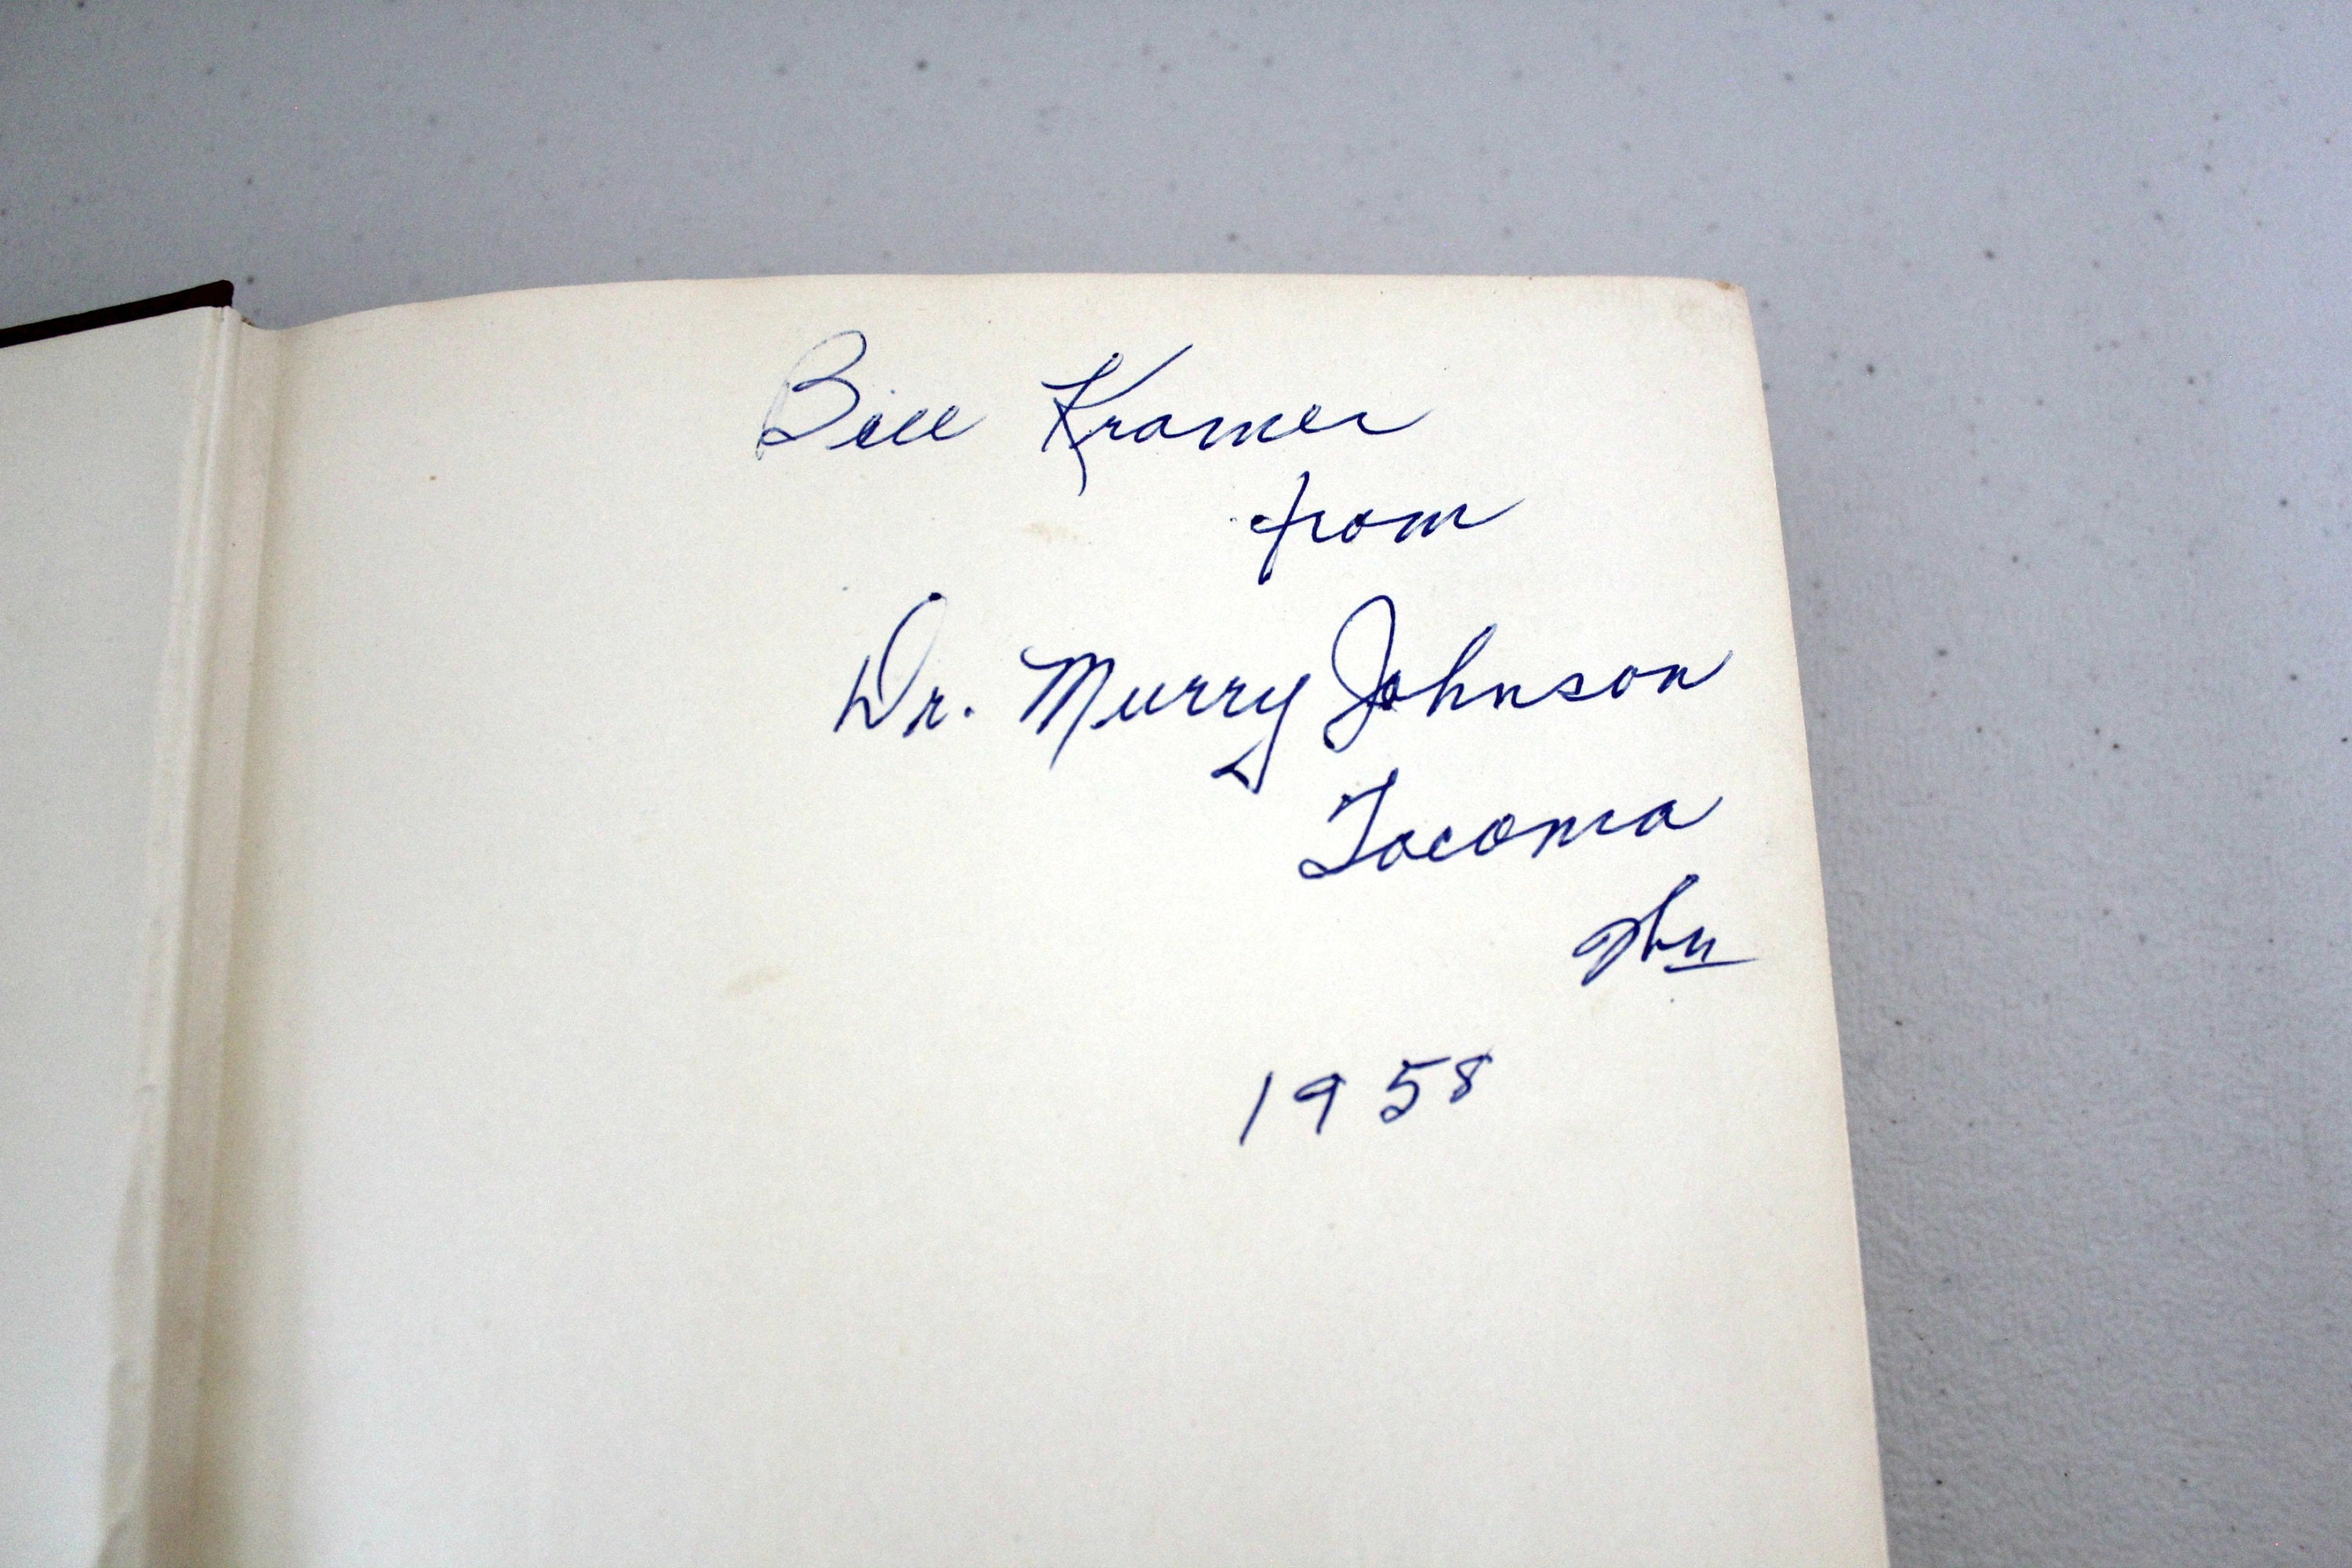 Bill Kramer
from
Dr. Murry Johnson
Tacoma
Wn
1958